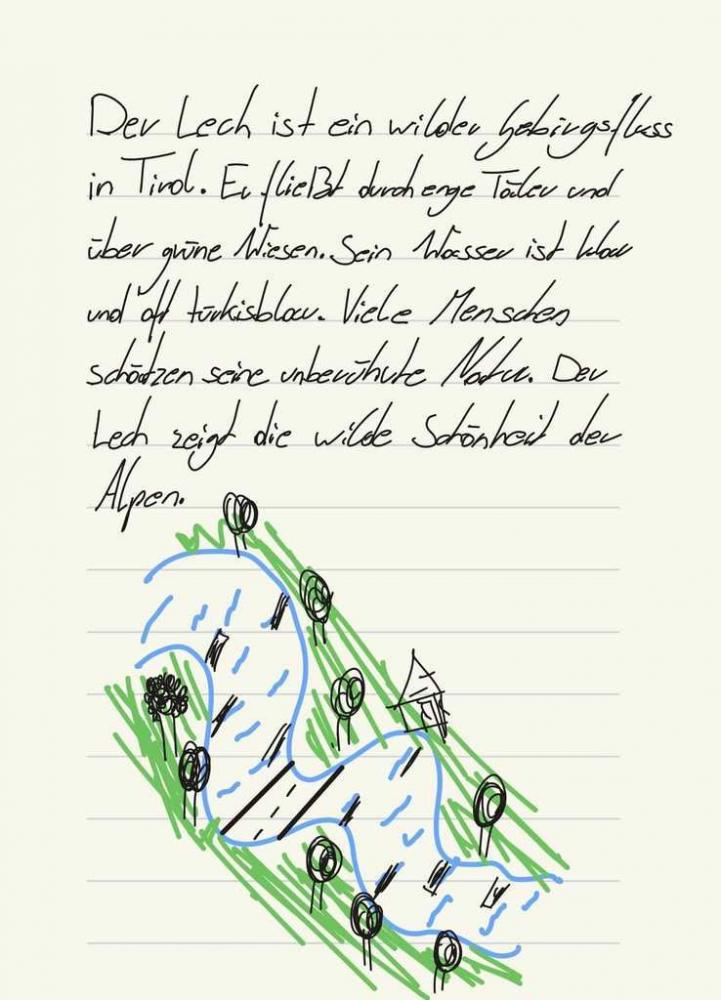 Der Lech ist ein wilder Gebirgsfluss
in Tirol. Er fließt durch enge Täler und
über grüne Wiesen. Sein Wasser ist klar
und oft türkisblau. Viele Menschen
schätzen seine unberührte Natur. Der
Lech zeigt die wilde Schönheit der
Alpen.